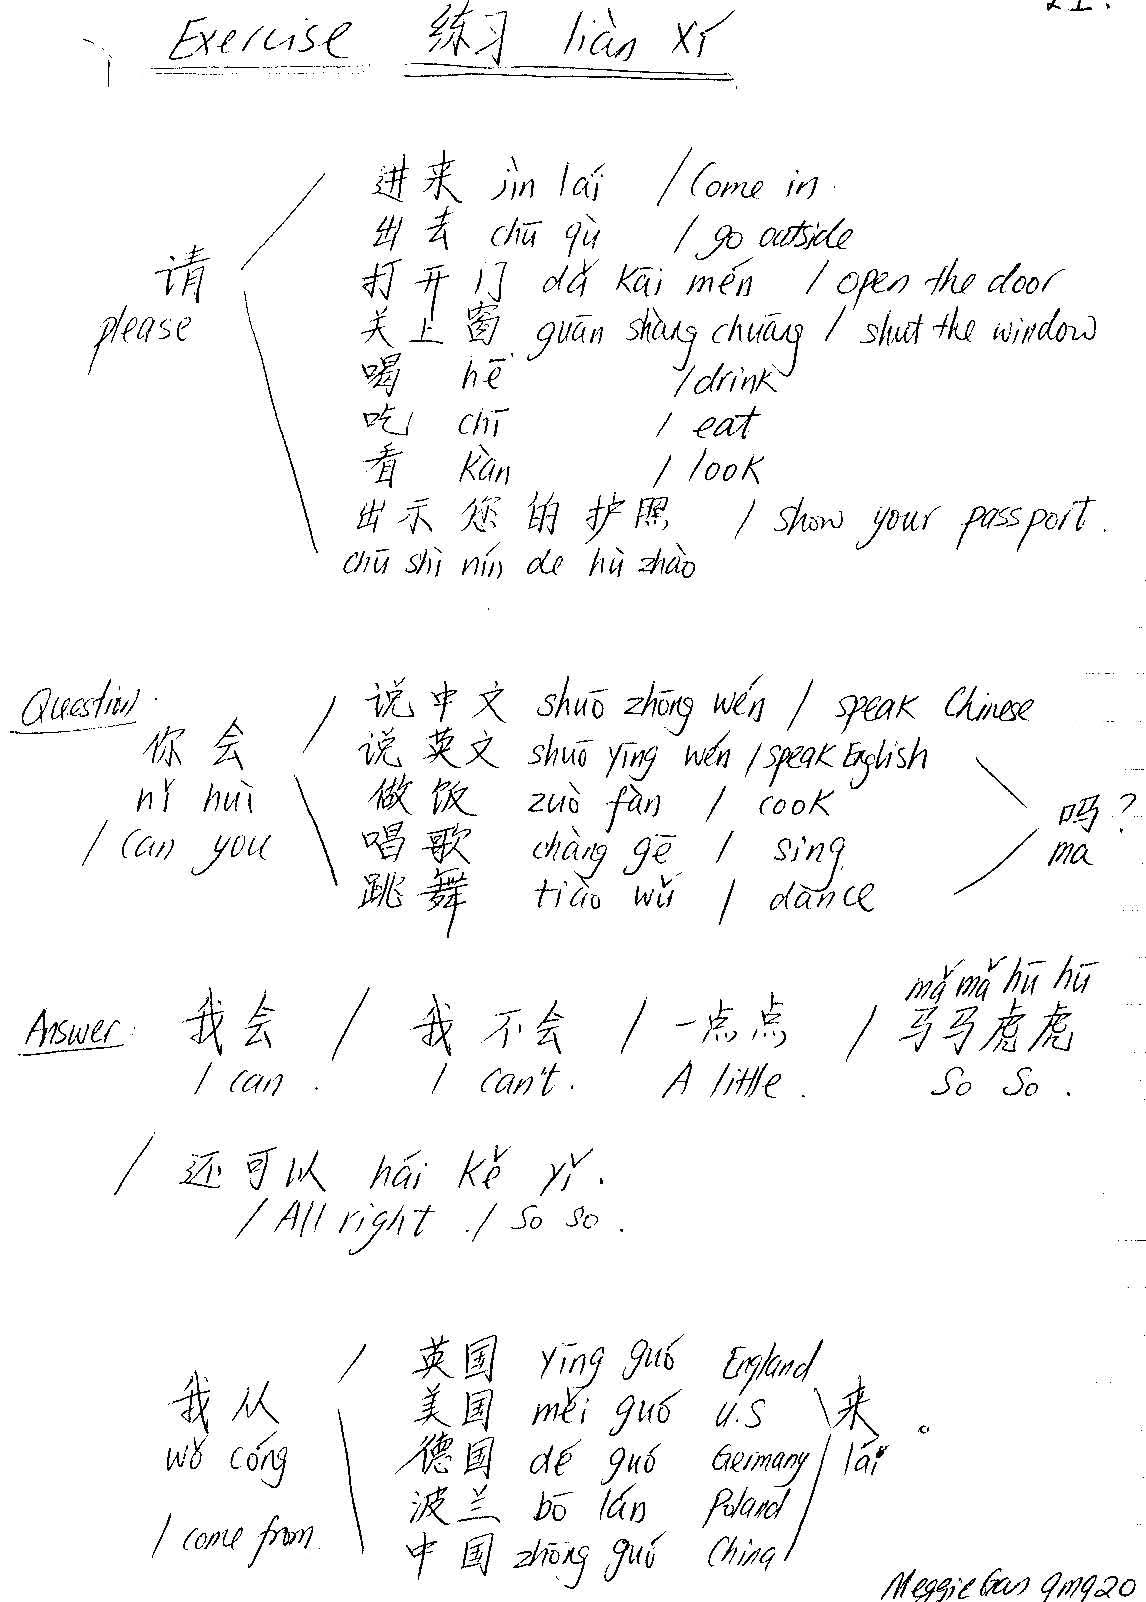 21.
Exercise 练习 liàn xí
进来 jìn lái / Come in.
出去 chū qù / go outside
请
打开门 dǎ kāi mén / open the door
please
关上窗 guān shàng chuāng / shut the window
喝 hē / drink
吃 chī / eat
看 kàn / look
出示您的护照 / show your passport.
chū shì nín de hù zhào
Question.
说中文 shuō zhōng wén / speak Chinese
你会
说英文 shuō yīng wén / speak English
nǐ huì
做饭 zuò fàn / cook
吗?
/ Can you
唱歌 chàng gē / sing
ma
跳舞 tiào wǔ / dance
mǎ mǎ hū hū
Answer: 我会 / 我不会 / 一点点 / 马马虎虎
I can. I can't. A little. So So.
/ 还可以 hái kě yǐ.
/ All right ./ So so.
英国 yīng guó England
我从
美国 měi guó U.S
来。
wǒ cóng
德国 dé guó Germany
lái
波兰 bō lán Poland
I come from
中国 zhōng guó China
Meggie Gan 9m920